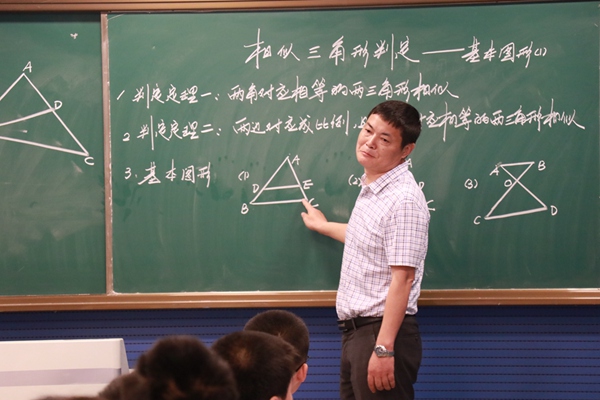 相似三角形判定——基本图形(1)
1 判定定理一：两角对应相等的两三角形相似
2 判定定理二：两边对应成比例，对应相等的两三角形相似
3. 基本图形
(1) A D E B C
(2) D C
(3) A B O C D
A D C